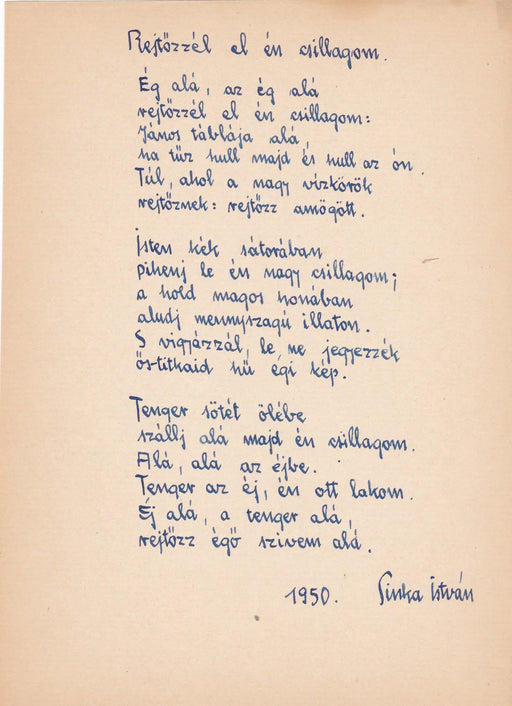 Rejtőzzél el én csillagom.
Ég alá, az ég alá
rejtőzzél el én csillagom:
János táblája alá,
ha tűz hull majd és hull az ón.
Túl, ahol a nagy vízkörök
rejtőznek: rejtőzz amögött.
Isten kék sátorában
pihenj le én nagy csillagom;
a hold magos honában
aludj mennyszagú illaton.
S vigyázzál, le ne jegyezzék
őstitkaid hű égi kép.
Tenger sötét ölébe
szállj alá majd én csillagom.
Alá, alá az éjbe.
Tenger az éj, én ott lakom.
Éj alá, a tenger alá,
rejtőzz égő szivem alá.
1950. Sinka István